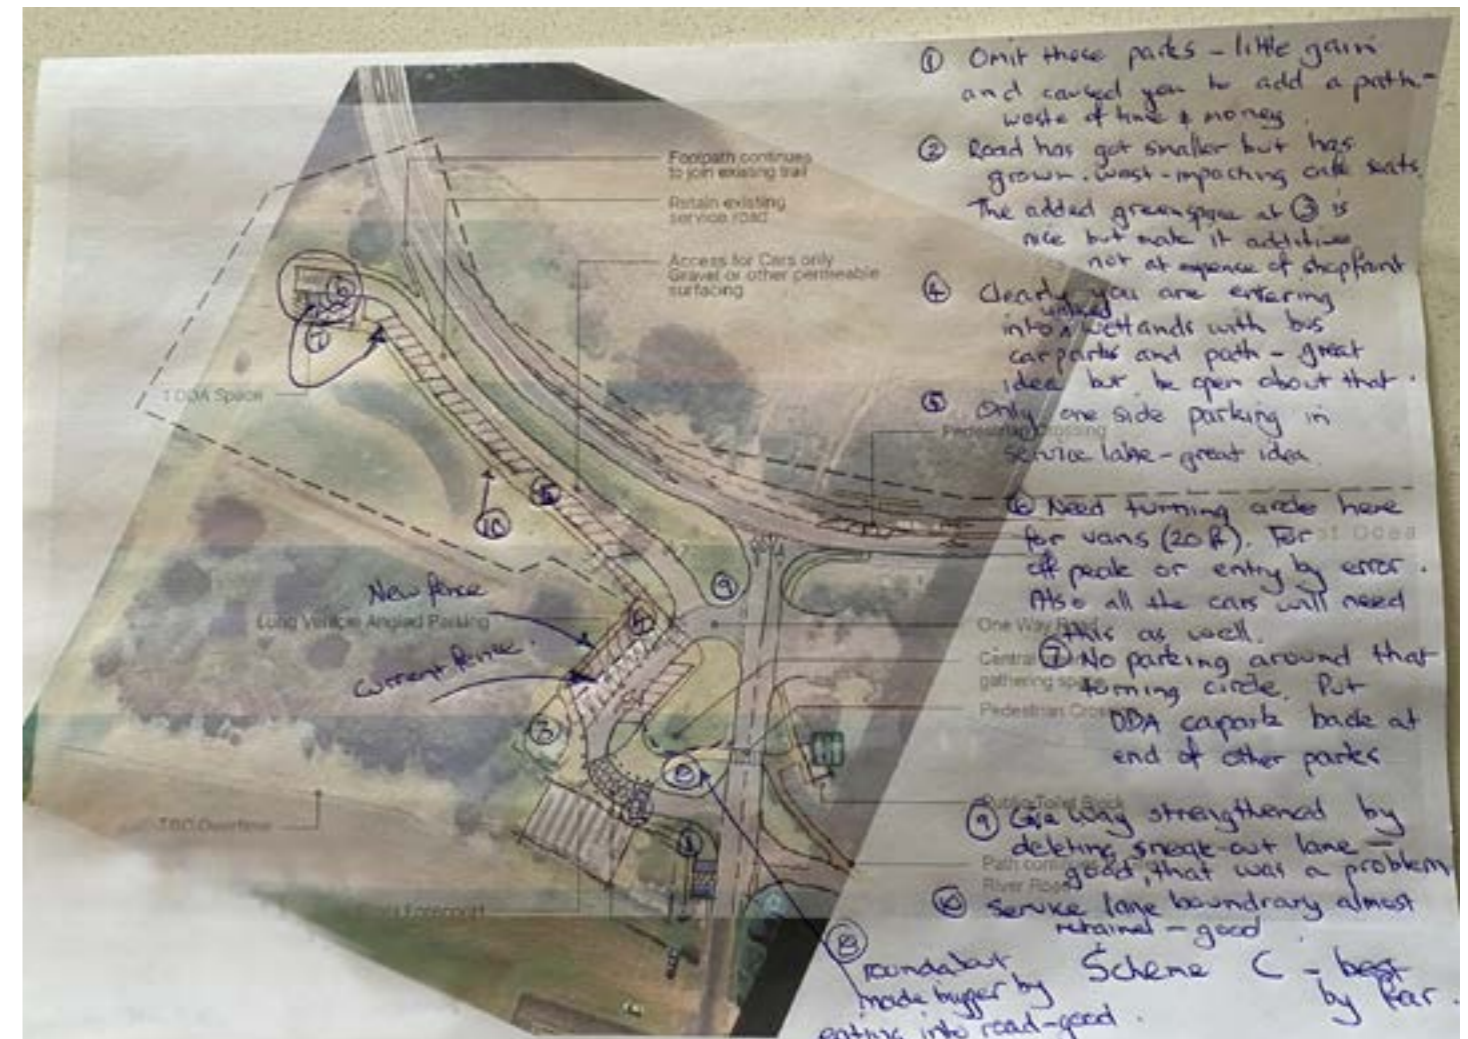 ① Omit these parks - little gain
and caused you to add a path-
waste of time & money.
② Road has got smaller but has
grown west - impacting cafe seats.
The added greenspace at ③ is
nice but make it additive
not at expense of shopfront
④ Clearly you are entering
into a wetlands with bus
carparks and path - great
idea but be open about that.
⑤ Only one side parking in
service lake - great idea.
⑥ Need turning circle here
for vans (20 ft). For
off peak or entry by error.
Also all the cars will need
this as well.
⑦ No parking around that
turning circle. Put
DDA capark back at
end of other parks
⑨ way strengthened by
deleting sneak-out lane -
good, that was a problem
⑩ Service lane boundrary almost
retained - good
Scheme C - best
by far.
⑧
roundabout
made bigger by
eating into road-good.
Footpath continues
to join existing trail
Retain existing
service road
Access for Cars only
Gravel or other permeable
surfacing
1 DDA Space
Pedestrian Crossing
⑥
⑦
⑤
⑩
⑨
New fence
Long Vehicle Angled Parking
current fence.
④
③
⑧
①
One Way Road
Central
gathering space
Pedestrian Cros
Public Toilet Block
Path con
River Road